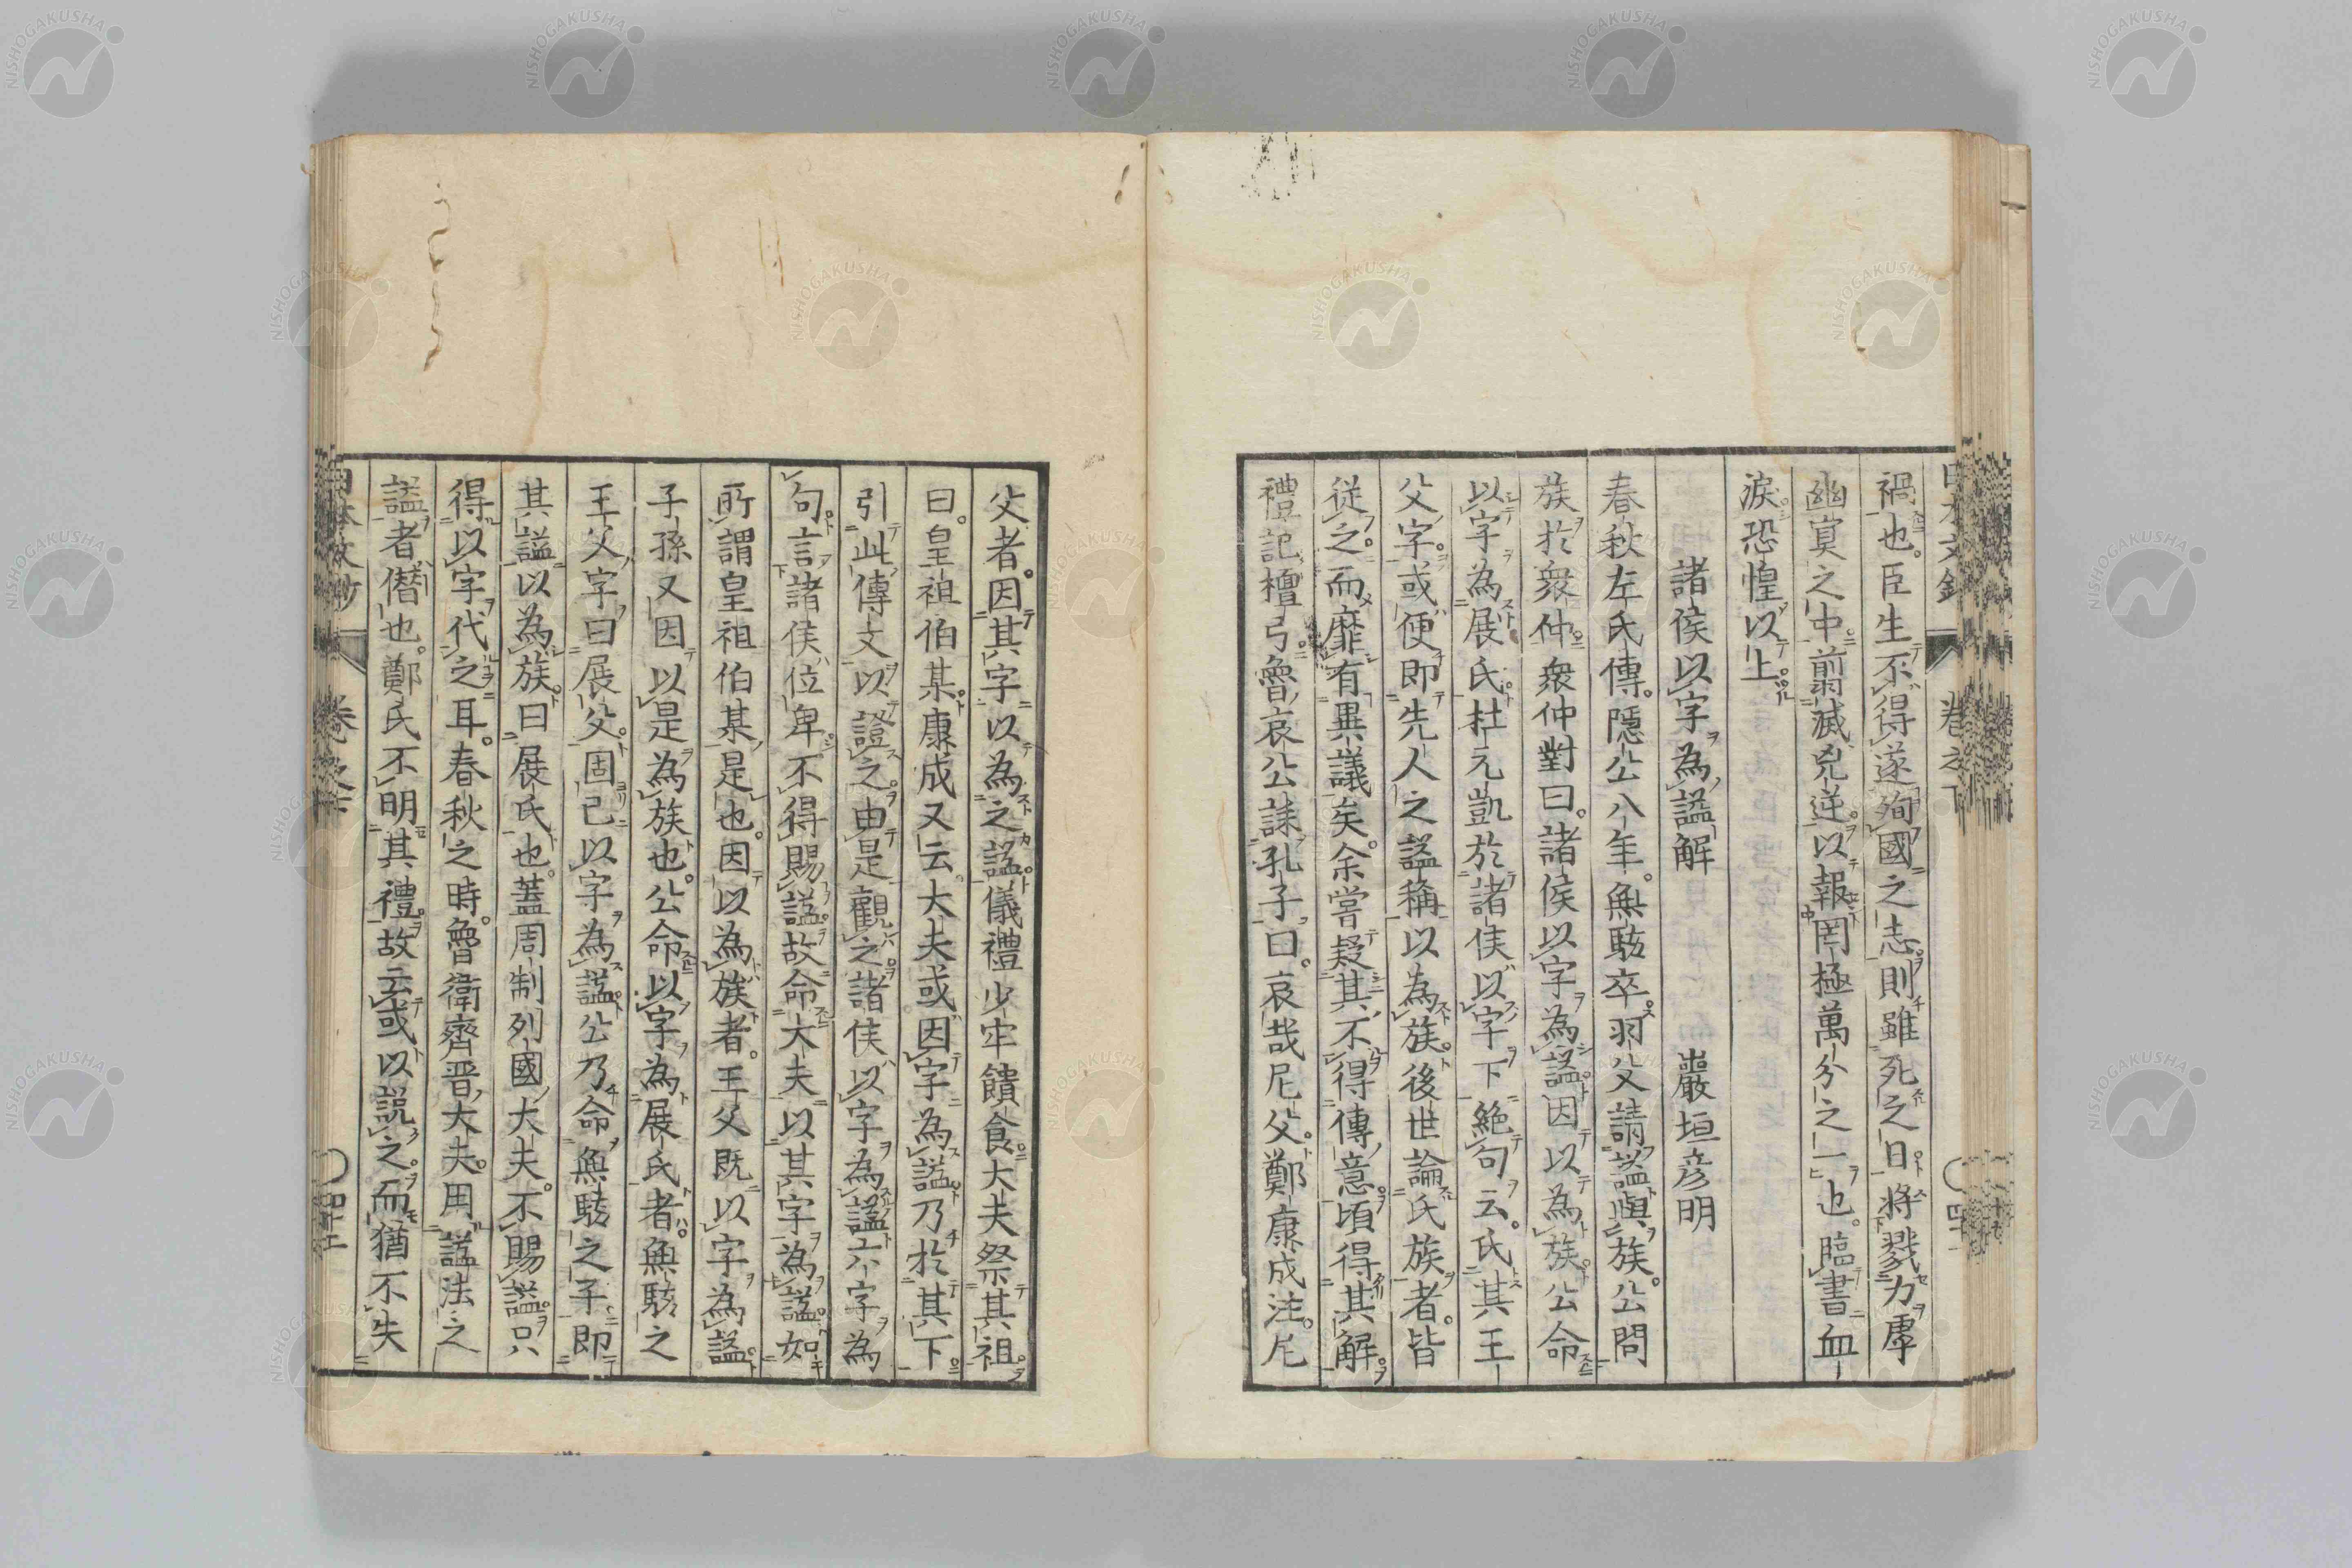 禍也。臣生不得遂殉國之志。則雖死之日。將戮力厚
幽冥之中。翦滅兇逆。以報罔極萬分之一也。臨書血
淚恐惶以上。
諸侯以字為謚解 巖垣彦明
春秋左氏傳。隱公八年。無駭卒。羽父請謚與族。公問
族於衆仲。衆仲對曰。諸侯以字為謚。因以為族。公命
以字為展氏。杜元凱於諸侯以字下絶句云。氏其王
父字。或便即先人之謚稱以為族。後世論氏族者。皆
從之。而靡有異議矣。余嘗疑其不得傳意。頃得其解。
禮記檀弓。魯哀公誄孔子。曰。哀哉尼父。鄭康成注。尼
父者。因其字以為之謚。儀禮少牢饋食。大夫祭其祖
曰。皇祖伯某。康成又云。大夫或因字為謚。乃於其下
引此傳文以證之。由是觀之。諸侯以字為謚六字為
句。言諸侯位卑。不得賜謚。故命大夫以其字為謚。如
所謂皇祖伯某是也。因以為族者。王父既以字為謚。
子孫又因以是為族也。公命以字為展氏者。無駭之
王父字曰展父。固已以字為謚。公乃命無駭之子。即
其謚以為族。曰展氏也。蓋周制列國大夫。不賜謚。只
得以字代之耳。春秋之時。魯衛齊晋大夫。用謚法之
謚者僭也。鄭氏不明其禮。故云或以說之。而猶不失